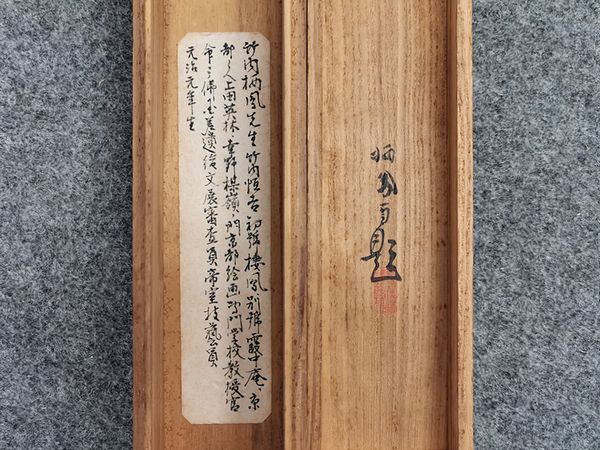 栖鳳自題
竹内栖鳳先生竹内恒吉初號棲鳳別號霞中庵、京
都之人土田英林、幸野楳嶺ノ門京都絵画専門学校教授官
命ニ佛差遣後文展審査員帝室技藝員
元治元年生